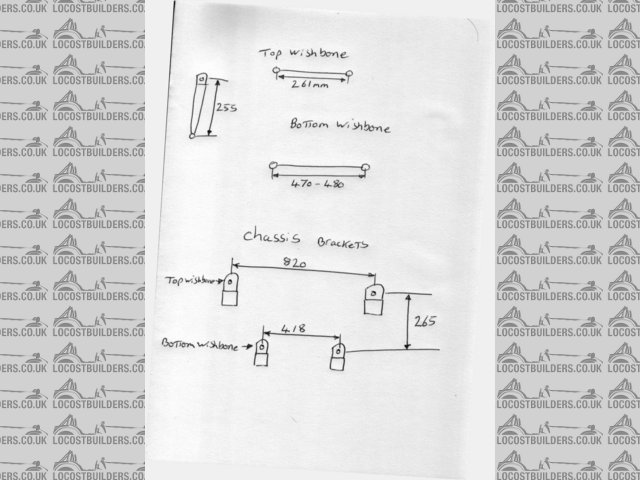 Top wishbone
261mm
255
Bottom wishbone
470 - 480
Chassis Brackets
820
Top wishbone
265
418
Bottom wishbone
LOCOSTBUILDERS.CO.UK